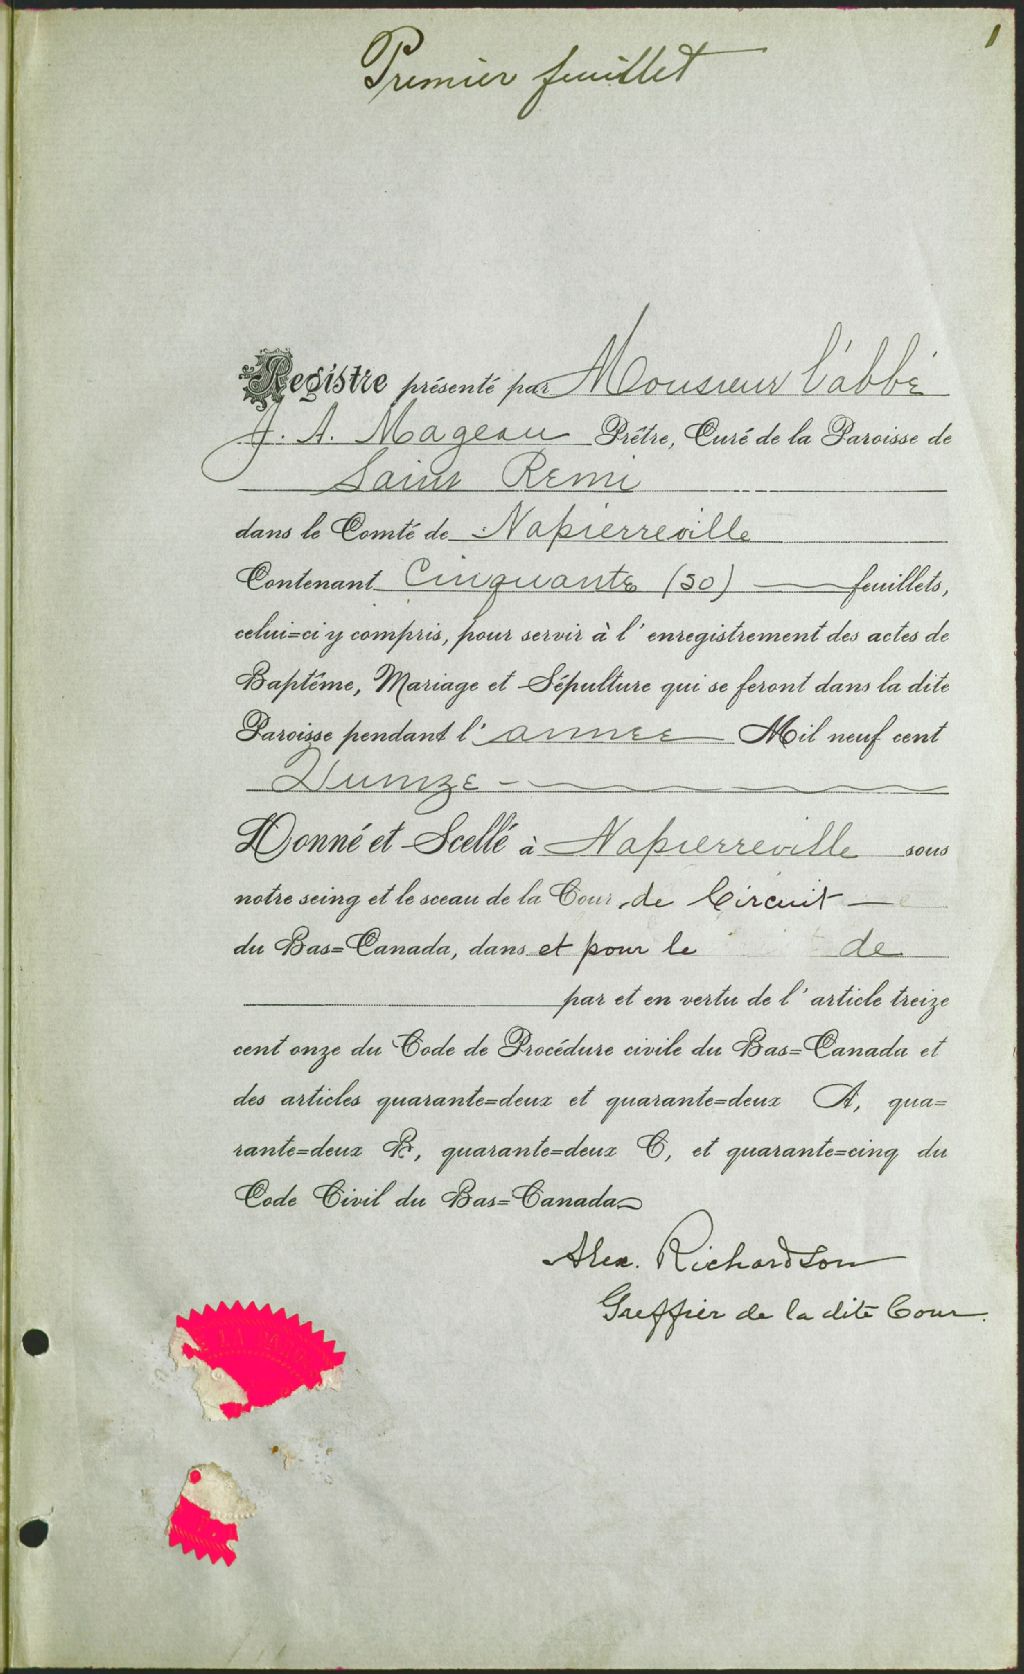 1
Premier feuillet
Registre présenté par Monsieur l'abbé
J. A. Mageau Prêtre, Curé de la Paroisse de
Saint Remi
dans le Comté de Napierreville
Contenant Cinquante (50) feuillets,
celui=ci y compris, pour servir à l'enregistrement des actes de
Baptême, Mariage et Sépulture qui se feront dans la dite
Paroisse pendant l'année Mil neuf cent
Quinze
Donné et Scellé à Napierreville sous
notre seing et le sceau de la Cour de Circuit
du Bas=Canada, dans et pour le de
par et en vertu de l'article treize
cent onze du Code de Procédure civile du Bas=Canada et
des articles quarante=deux et quarante=deux A, qua=
rante=deux B, quarante=deux C, et quarante=cinq du
Code Civil du Bas=Canada
Alex. Richardson
Greffier de la dite Cour.